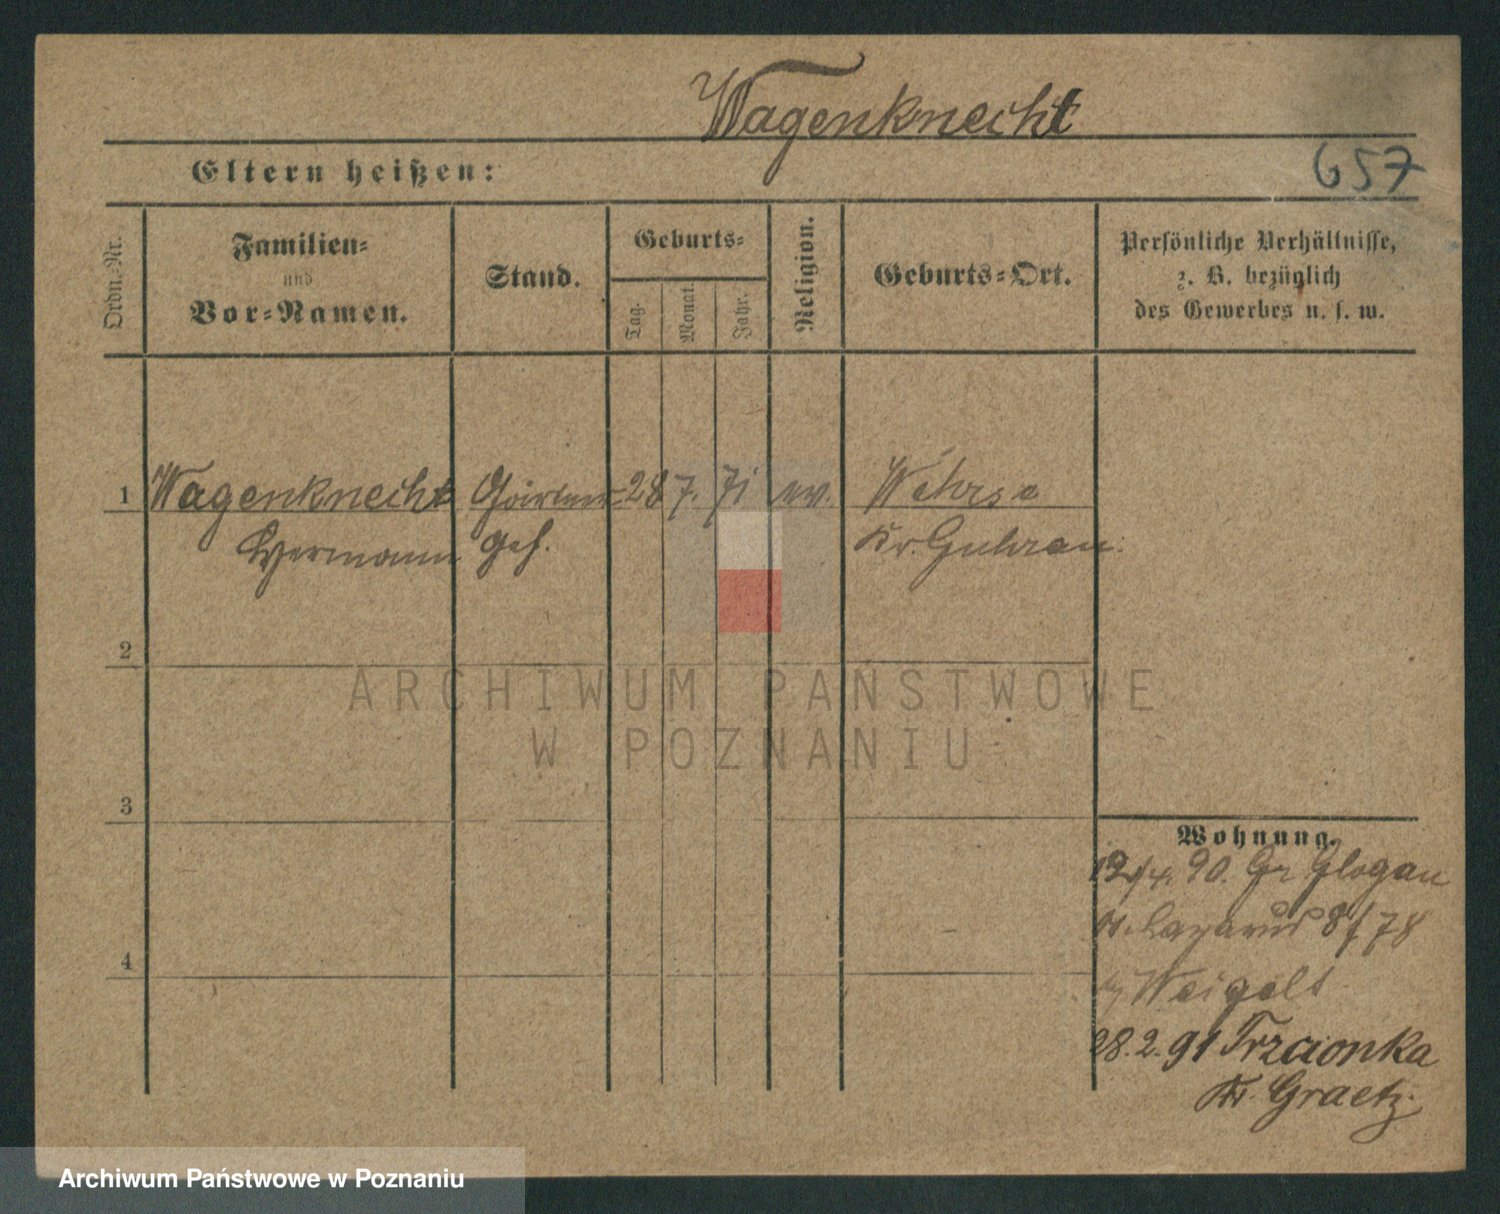 Wagenknecht
657
Eltern heißen:
Ordn.-Nr.
Familien-
und
Vor-Namen.
Stand.
Geburts-
Tag.
Monat.
Jahr.
Religion.
Geburts-Ort.
Persönliche Verhältnisse,
z. B. bezüglich
des Gewerbes u. s. w.
1 Wagenknecht Gärtner- 28 7. 71 ev.
Hermann Geh. Kr. Guhrau.
2
ARCHIWUM PAŃSTWOWE
W POZNANIU
3
Wohnung.
12/4. 90. Gr Glogau
St. Lazarus 8/78
Weigelt
4
28.2.91 Trzcionka
Kr. Graetz.
Archiwum Państwowe w Poznaniu